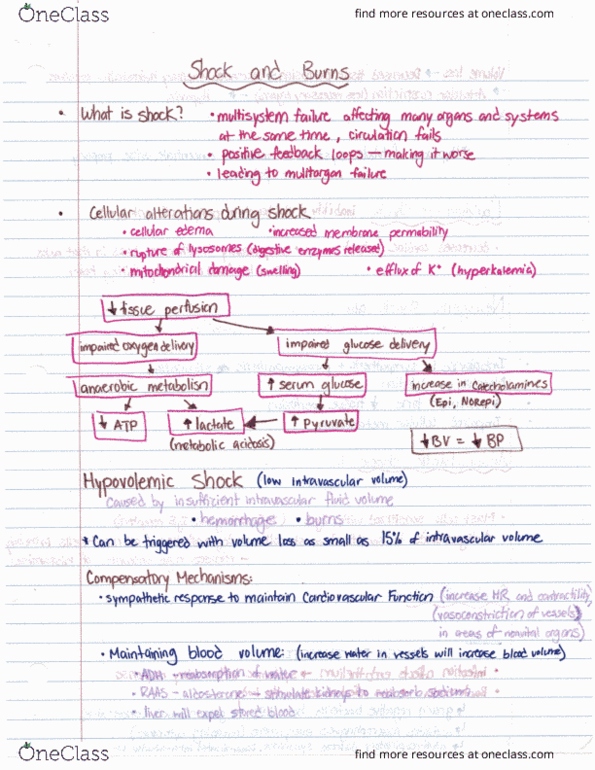 OneClass
find more resources at oneclass.com
Shock and Burns
• What is shock? • multisystem failure affecting many organs and systems
at the same time, circulation fails
• positive feedback loops — making it worse
• leading to mulitorgan failure
• Cellular alterations during shock
• cellular edema • increased membrane permability
• rupture of lysosomes (digestive enzymes released)
• mitochondrical damage (swelling) • efflux of K⁺ (hyperkalemia)
↓ tissue perfusion
impaired oxygen delivery impaired glucose delivery
anaerobic metabolisn ↑ serum glucose increase in catecholamines
(Epi, NOREpi)
↓ ATP ↑ lactate ↑ Pyruvate
(metabolic acidosis) ↓BV = ↓ BP
Hypovolemic Shock (low intravascular volume)
Caused by insufficient intravascular fluid volume
• hemorrhage • burns
* Can be triggered with volume loss as small as 15% of intravascular volume
Compensatory Mechanisms:
• sympathetic response to maintain Cardiovascular Function (increase HR and contractility)
(vasoconstriction of vessels)
in areas of nonvital organs)
• Maintaining blood volume: (increase water in vessels will increase blood volume)
• ADH - reabsorption of water
• RAAS - aldosterone - stimulate kidneys to reabsorb sodium
• liver will expel stored blood
OneClass
find more resources at oneclass.com